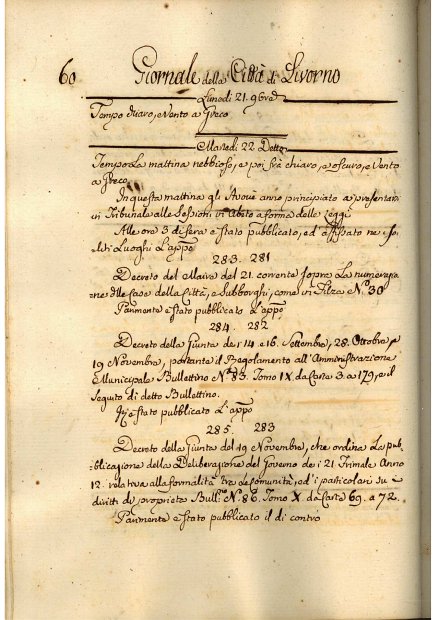 60 Giornale della Città di Livorno
Lunedi 21. 9bre
Tempo chiaro, e Vento a Greco
Martedi 22 Detto
Tempo La mattina nebbioso, e poi frà chiaro, e oscuro, e Vento
a Greco
In questa mattina gli Avoué anno principiato a presentarsi
in Tribunale alle Sessioni in Abito a forma delle Leggi
Alle ore 3 di sera è stato pubblicato, ed affissato ne i So-
liti Luoghi L'appo
283. 281
Decreto del Maire del 21. corrente sopra La numerazi-
one delle Case della Città, e Subborghi, come in Filza N.º 30
Parimente è stato pubblicato L'appo
284. 282
Decreto della Giunta de' 14 e 16. Settembre, 28. Ottobre, e
19 Novembre, portante il Regolamento all'Amministrazione
Municipale Bullettino N.º 83. Tomo IX. da Carte 3. a 179, e il
Seguito di detto Bullettino.
È stato pubblicato L'appo
285. 283
Decreto della Giunta del 19 Novembre, che ordina La pub-
blicazione della Deliberazione del Governo de i 21 Frimale Anno
12. relativa alla formalità tra le Comunità, ed i particolari su i
diritti di proprietà Bull.º N.º 86. Tomo X. da Carte 69. a 72.
Parimente è stato pubblicato il di contro